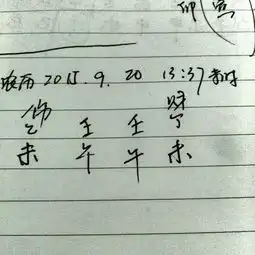 寅
农历 2015.9.20 13:37 未时
伤 财
乙 壬 壬 丁
未 午 午 未